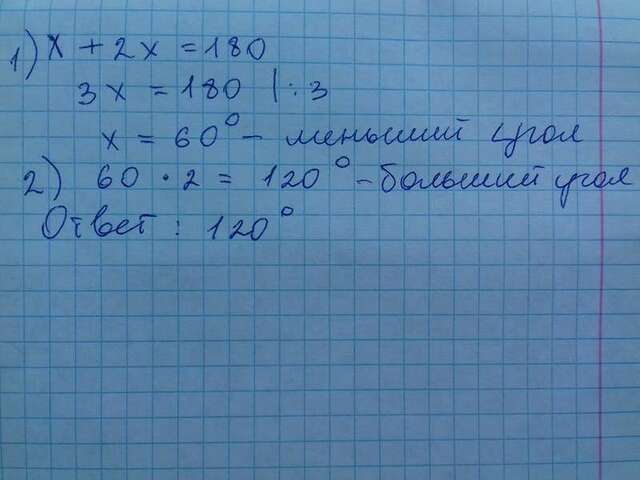 1) x + 2x = 180
3x = 180 | : 3
x = 60° – меньший угол
2) 60 · 2 = 120° – больший угол
Ответ: 120°